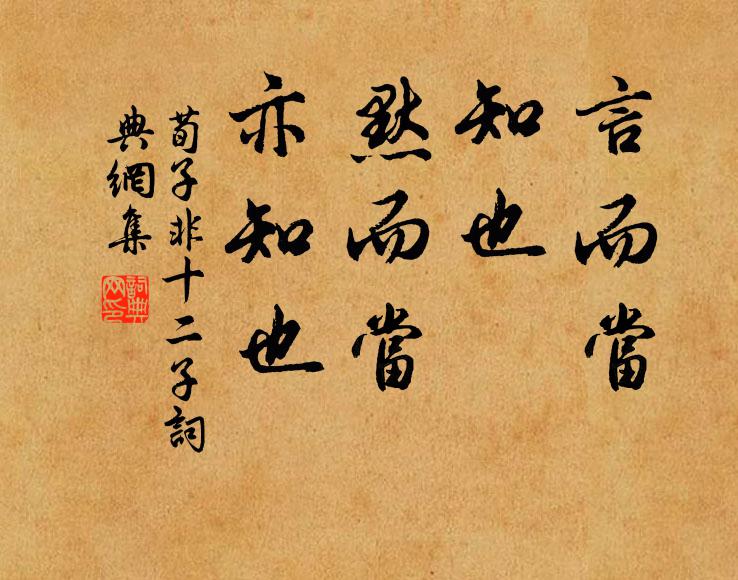 言而當
知也
默而當
亦知也
荀子非十二子詞
典網集
詞典
网印